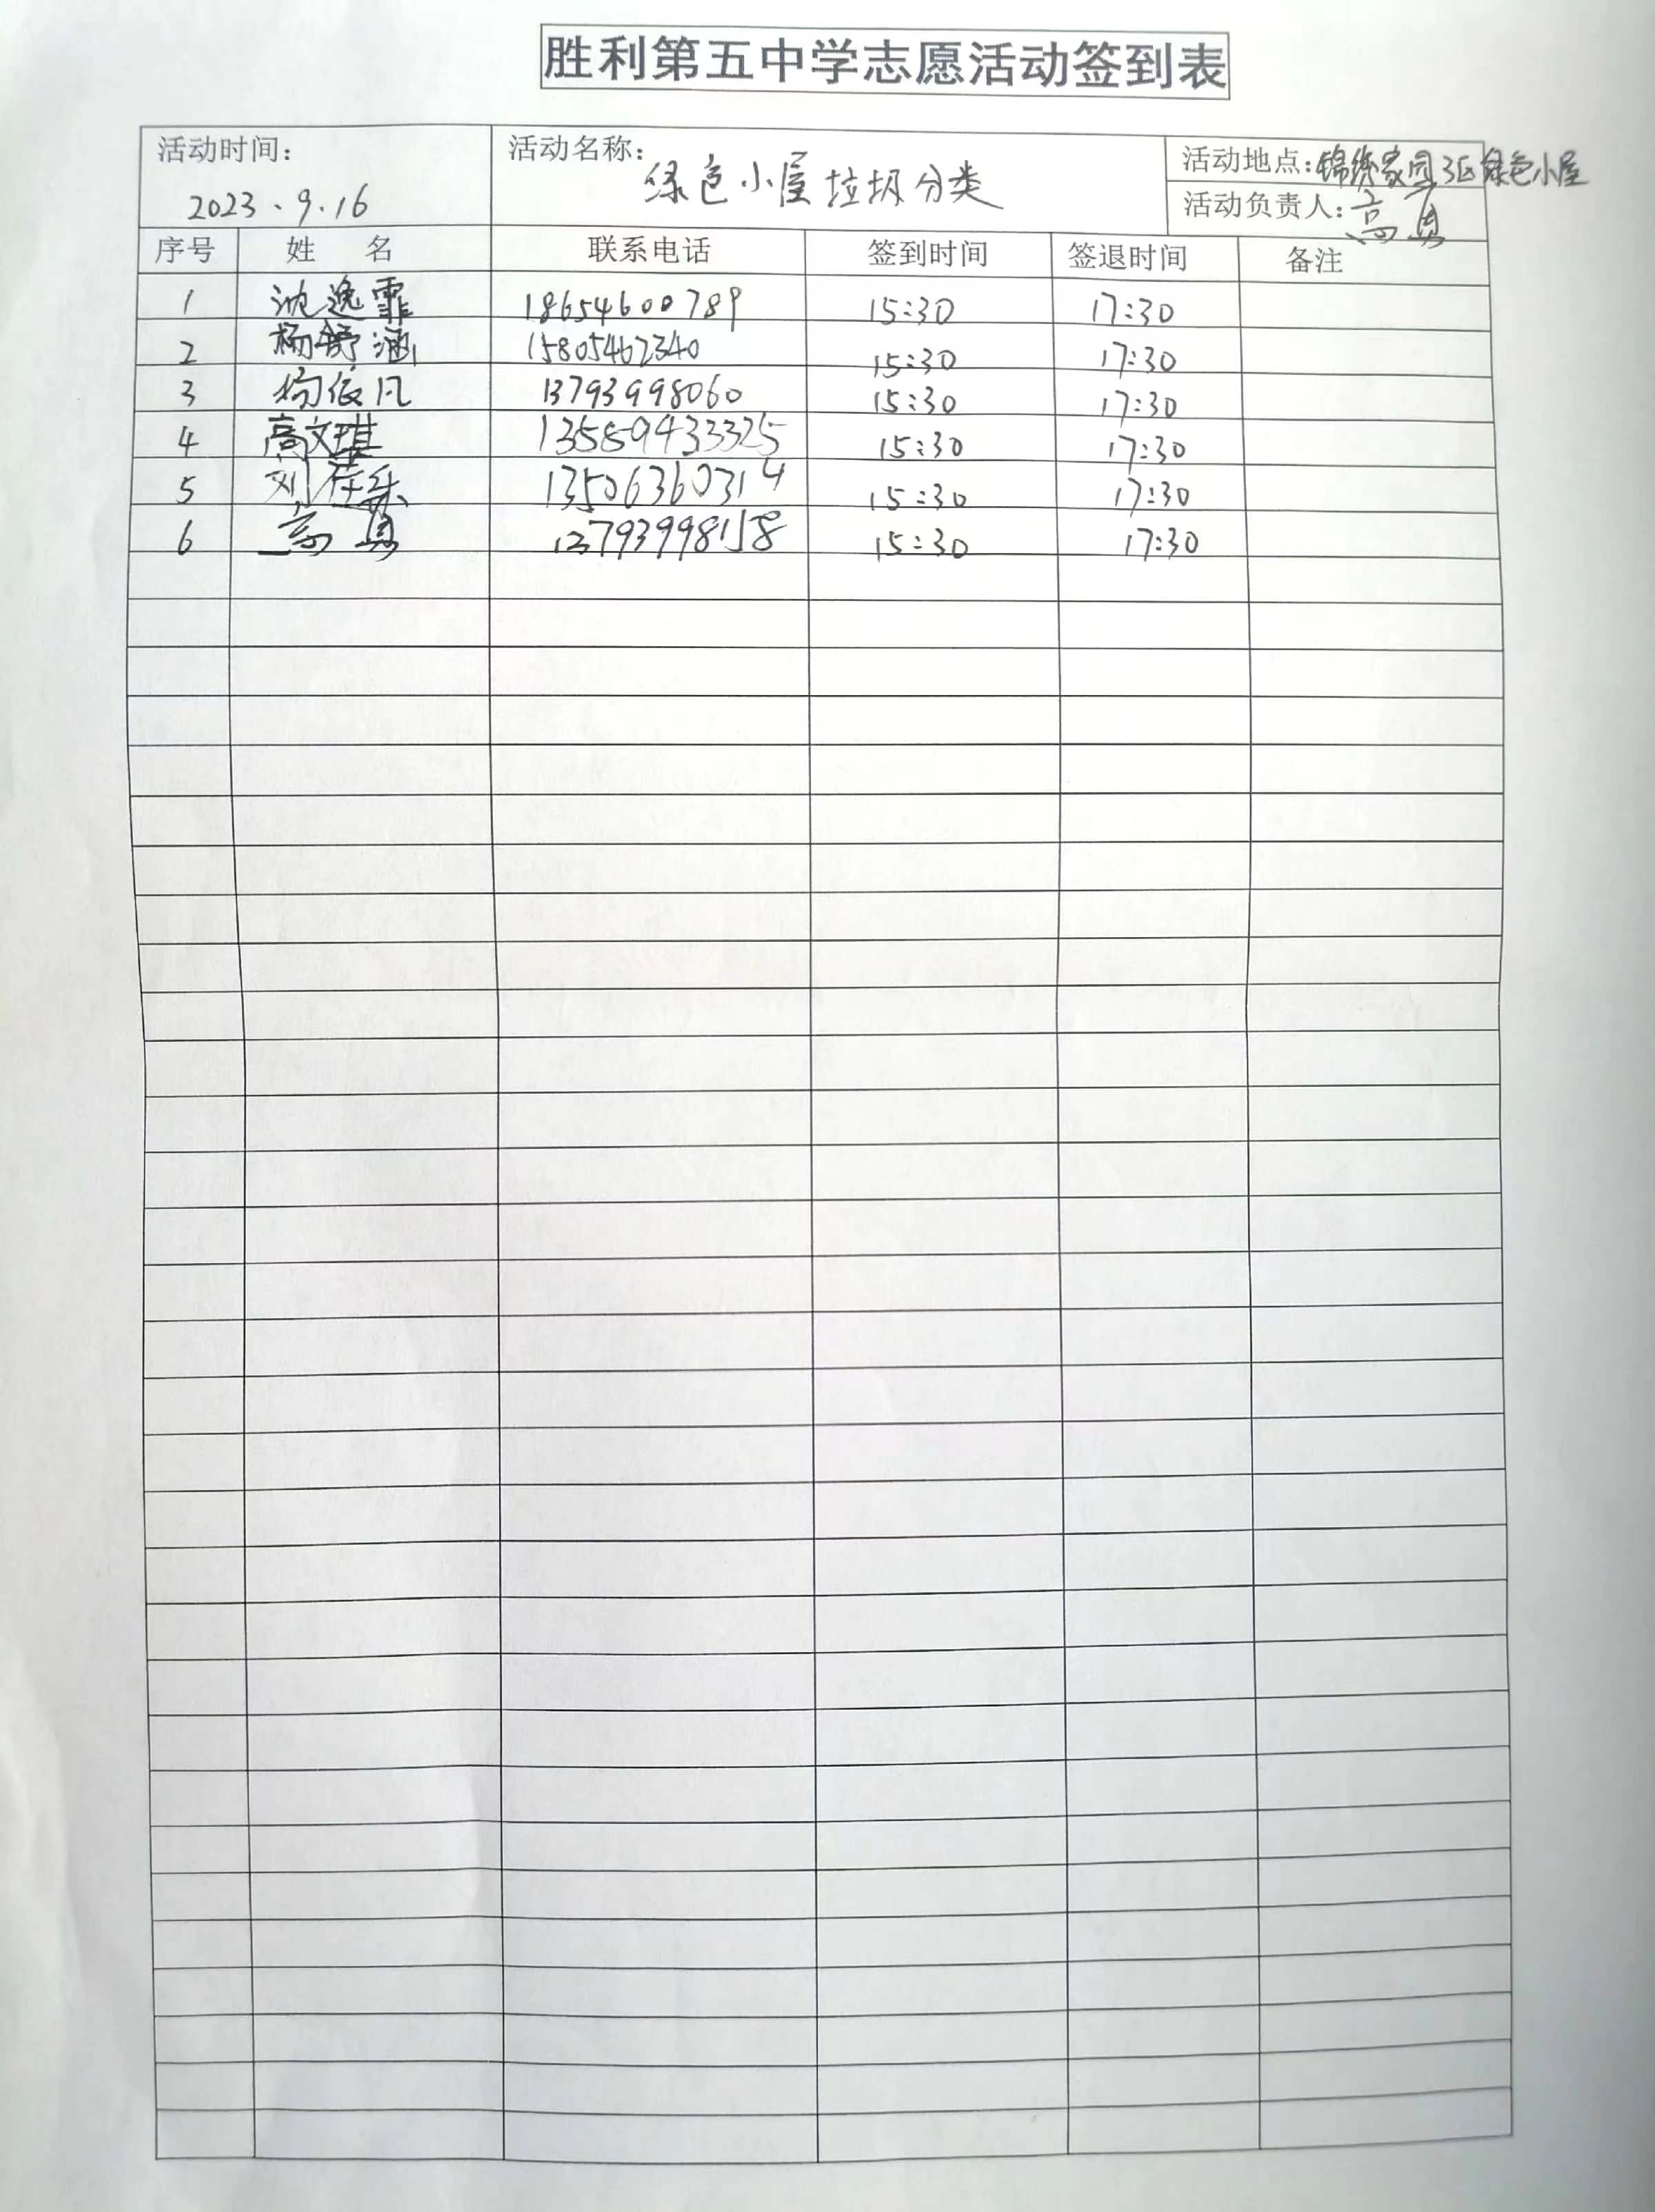 胜利第五中学志愿活动签到表
活动时间: 活动名称: 绿色小屋垃圾分类 活动地点:锦绣家园3区绿色小屋
2023.9.16 活动负责人:高
序号 姓 名 联系电话 签到时间 签退时间 备注
1 沈逸霏 18654600789 15:30 17:30
2 杨舒涵 15805462340 15:30 17:30
3 杨依凡 13793998060 15:30 17:30
4 高文琪 13589433325 15:30 17:30
5 刘佳乐 13506360314 15:30 17:30
6 高 13793998158 15:30 17:30